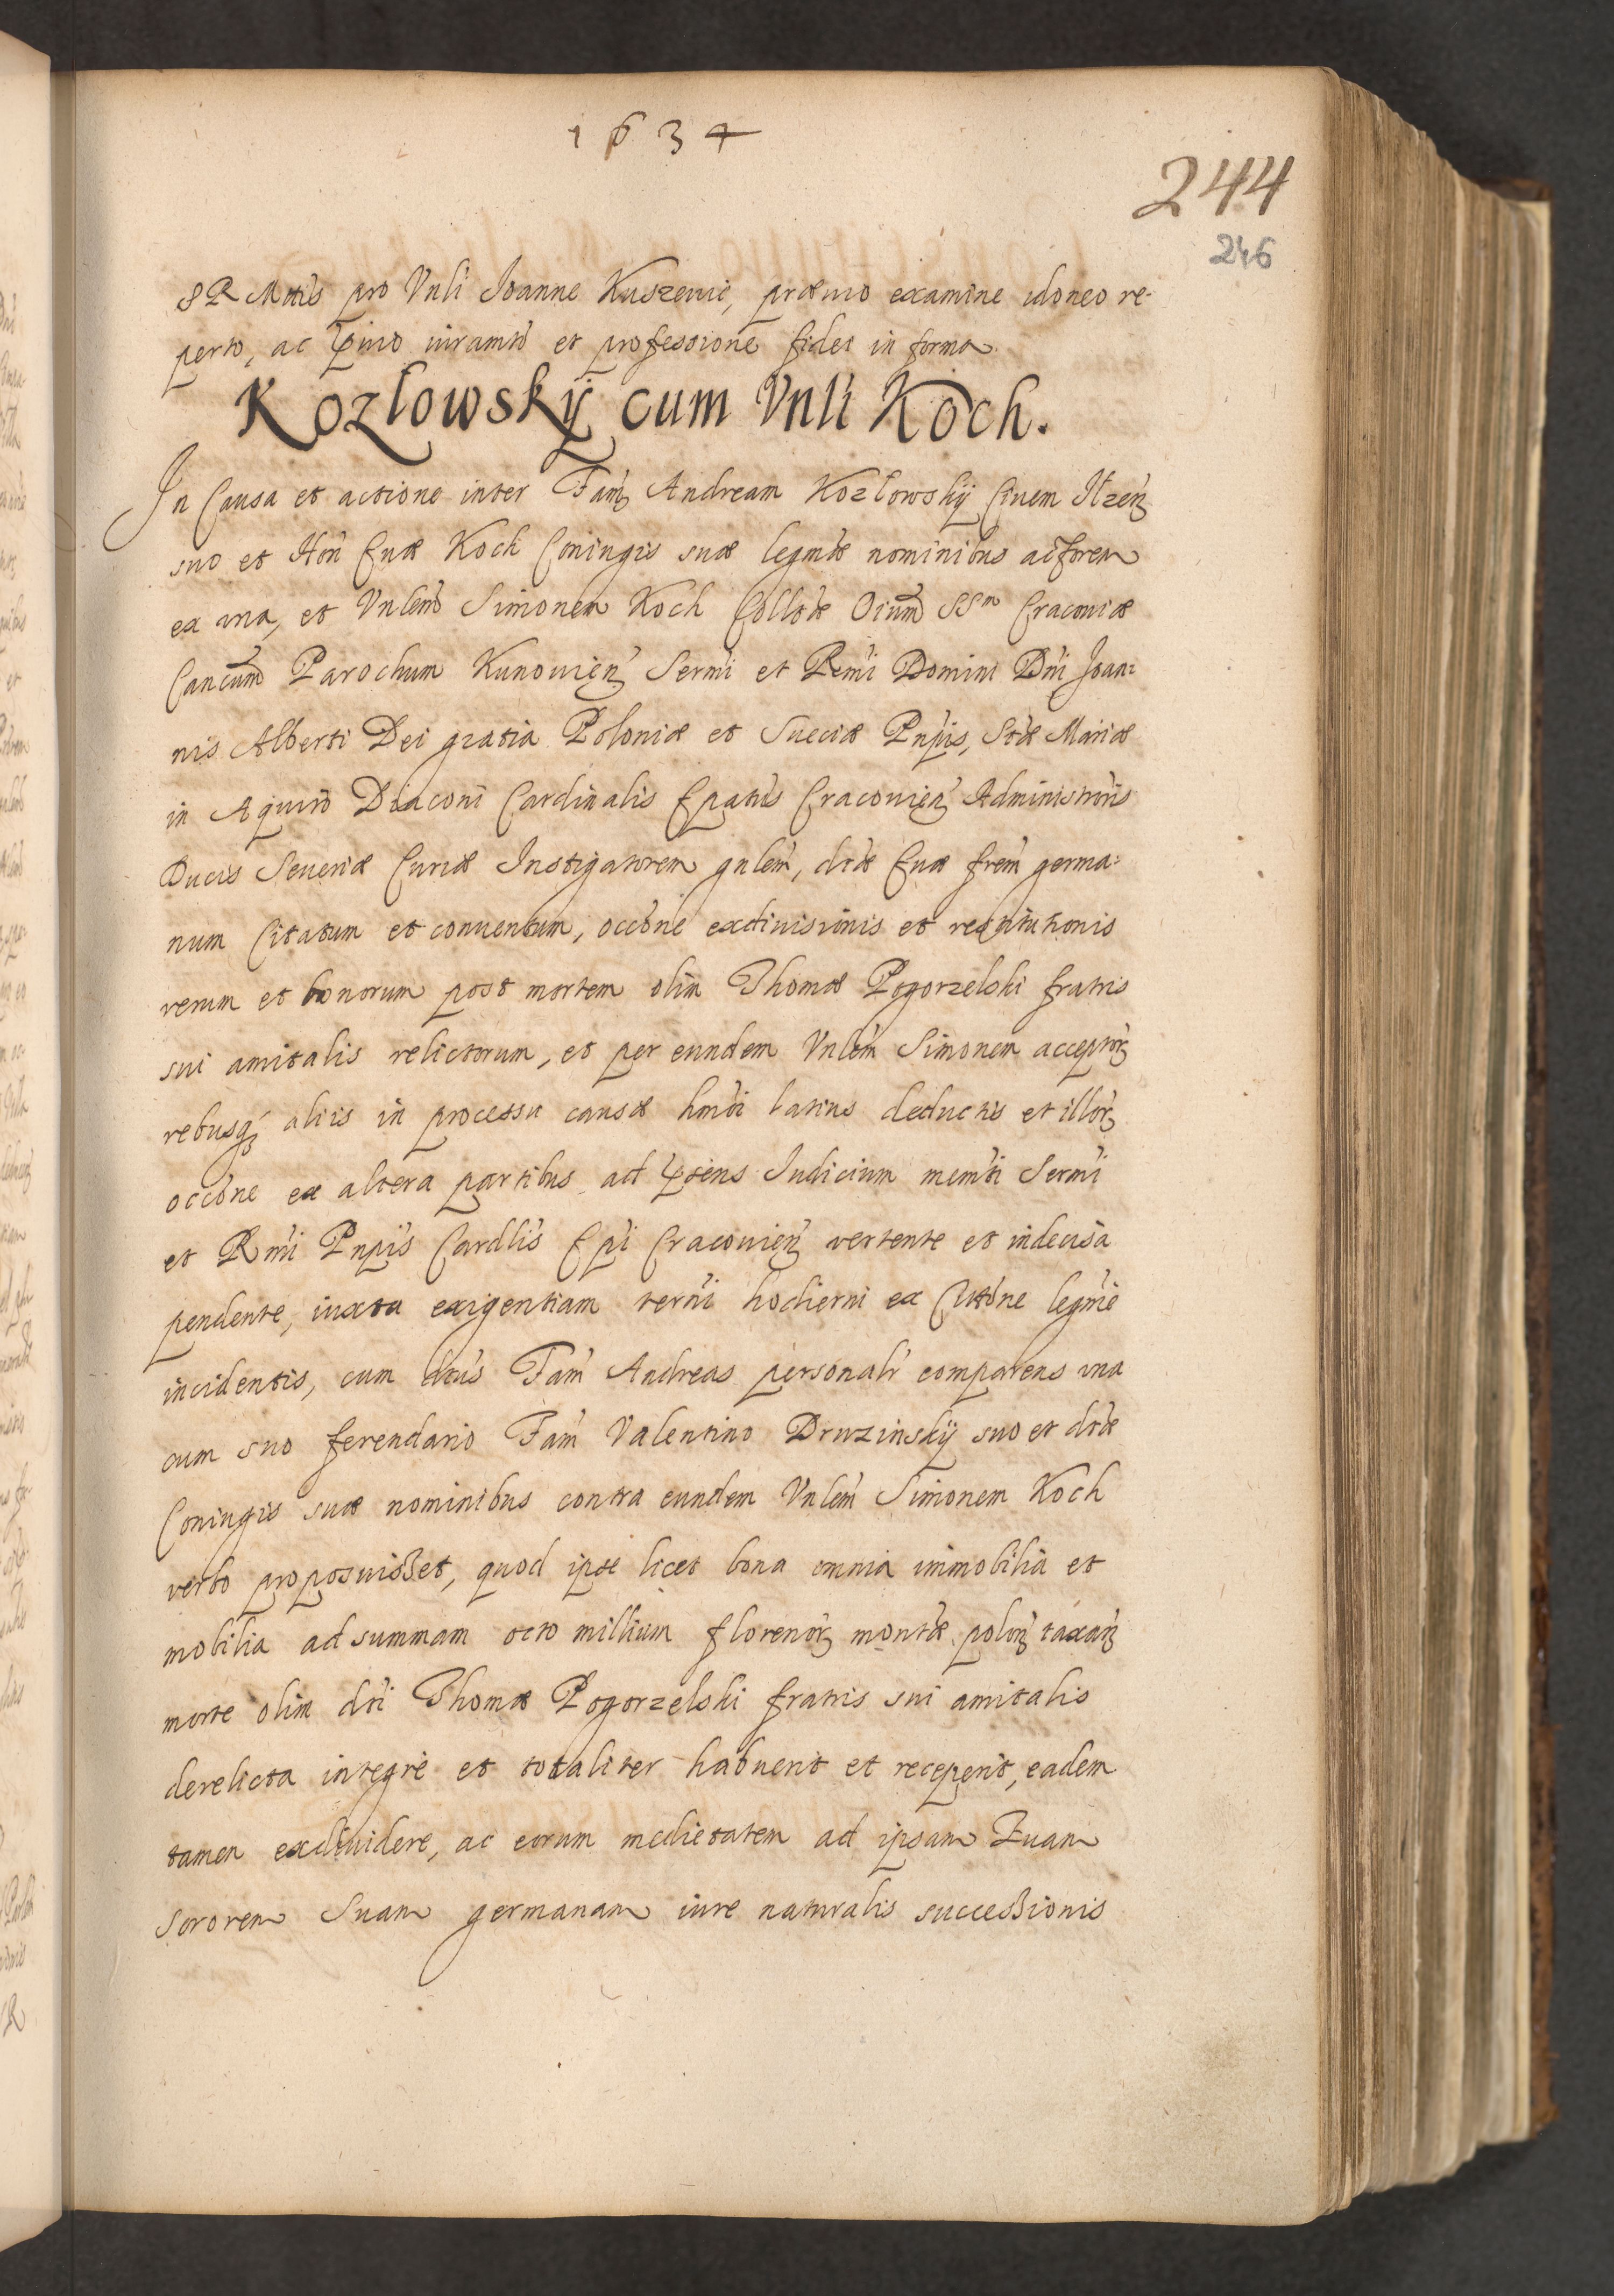 1634
244
246
SR Mttis pro Vnli Ioanne Kuszewic, præuio examine idoneo re-
perto, ac puio iuramto et professione fidei in forma
Kozlowskÿ cum Vnli Koch.
In Causa et actione inter Fam Andream Kozlowskÿ Ciuem Ilzen
suo et Hon Euæ Koch Coniugis suæ legmæ nominibus actorem
ex vna, et Vnlem Simonem Koch Colltæ Oium SSm Cracouiæ
Cancum Parochum Kunouien Sermi et Remi Domini Dni Joan:
nis Alberti Dei gratia Poloniæ et Sueciæ Pnpis, Stæ Mariæ
in Aquiro Diaconi Cardinalis Epatus Cracouien Administris
Ducis Seueriæ Curiæ Instigatorem gnlem, dtæ Euæ frem germa:
num Citatum et conuentum, occone exdiuisionis et restitutionis
rerum et bonorum post mortem olim Thomæ Pogorzelski fratris
sui amitalis relictorum, et per eundem Vnlem Simonem acceptor
rebusq aliis in processu causæ hmdi latius deductis et illor
occone ex altera partibus ad pñens Iudicium memti Sermi
et Rmi Pnpis Cardlis Epi Cracouien vertente et indecisa
pendente, iuxta exigentiam termi hodierni ex Cittone legme
incidentis, cum dtus Fam Andreas personalr comparens vna
cum suo ferendario Fam Valentino Druzinskÿ suo et dtæ
Coniugis suæ nominibus contra eundem Vnlem Simonem Koch
verbo proposuisset, quod ipse licet bona omnia immobilia et
mobilia ad summam octo millium florenor montæ polon taxan
morte olim dti Thomæ Pogorzelski fratris sui amitalis
derelicta integre et totaliter habuerit et receperit, eadem
tamen exdiuidere, ac eorum medietatem ad ipsam Euam
Sororem Suam germanam iure naturalis successionis